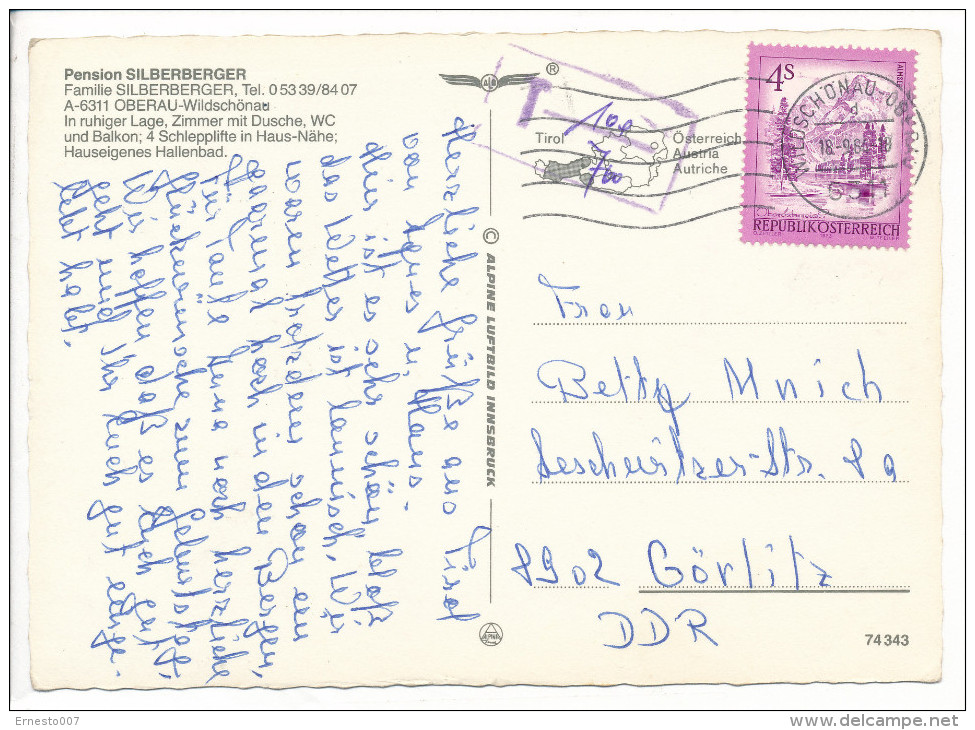 Pension SILBERBERGER
Familie SILBERBERGER, Tel. 0 53 39/84 07
A-6311 OBERAU-Wildschönau
In ruhiger Lage, Zimmer mit Dusche, WC
und Balkon; 4 Schlepplifte in Haus-Nähe;
Hauseigenes Hallenbad.
Herzliche Grüße aus Tirol
von u. Hans.
Hier ist es sehr schön, bloß
das Wetter ist launisch. Wir
waren trotzdem schon ein
paarmal hoch in den Bergen.
Für Tante noch herzliche
Glückwünsche zum Geburtstag.
Wir hoffen daß es Euch gut
geht und Ihr Euch gut
habt.
© ALPINE LUFTBILD INNSBRUCK
®
T
100
700
Tirol
Österreich
Austria
Autriche
4S
ALMSEE
REPUBLIK ÖSTERREICH
WILDSCHÖNAU-OBERAU
18-9.8
Frau
Betty Mnich
Leschwitzer-Str. 89
8902 Görlitz
DDR
74 343
Ernesto007
www.delcampe.net